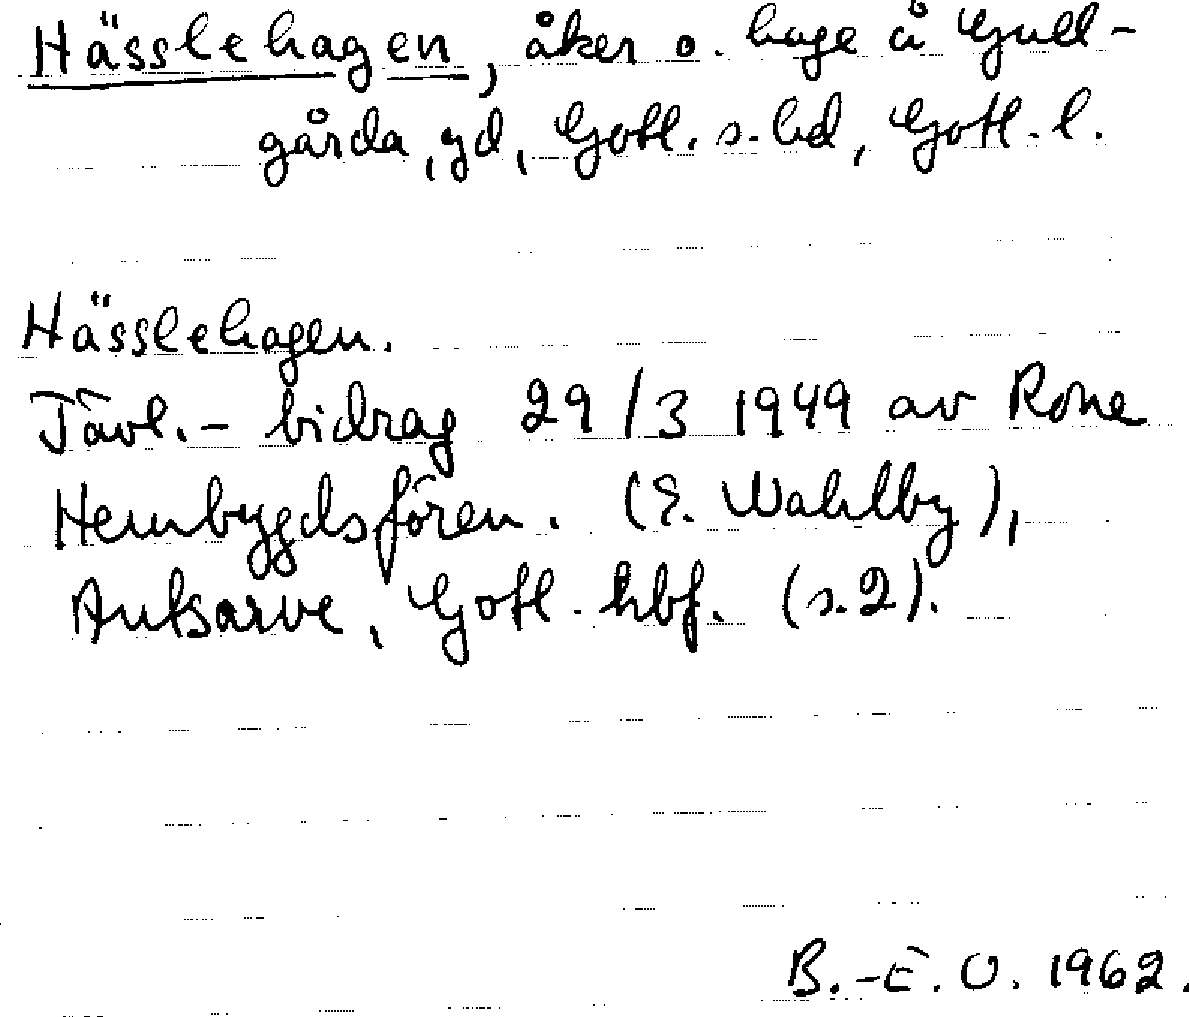 Hässlehagen, åker o. hage å Gull-
gårda, gd, Gotl. s. hd, Gotl. l.
Hässlehagen.
Tävl.- bidrag 29/3 1949 av Rone
Hembygdsfören. (E. Wahlby),
Autsarve, Gotl. hbf. (s.2).
B.-E. O. 1962.